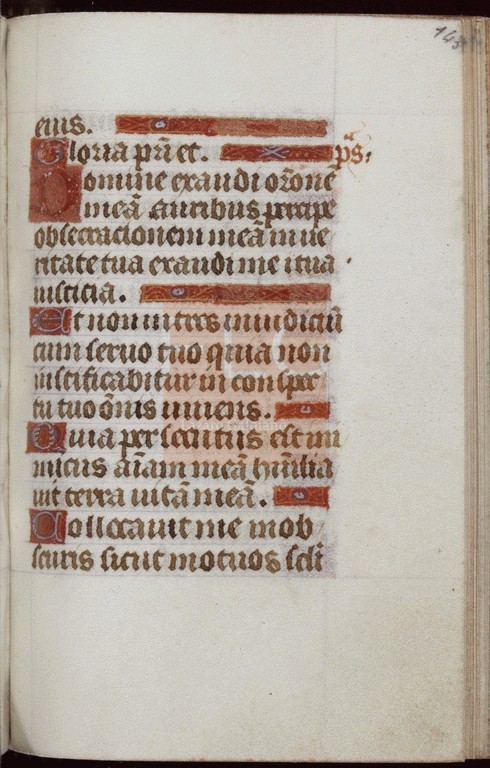 143
eius.
Gloria pr̄i et. p̄s.
Domine exaudi or̄one
meā auribus percipe
obsecracionem meā in ue
ritate tua exaudi me i tua
iusticia.
Et non intres in iudiciū
cum seruo tuo quia non
iustificabitur in conspec
tu tuo om̄is uiuens.
Quia persecutus est ini
micus aīam meā humilia
uit terra uitā meā.
Collocauit me in ob
scuris sicut motuos scl̄i